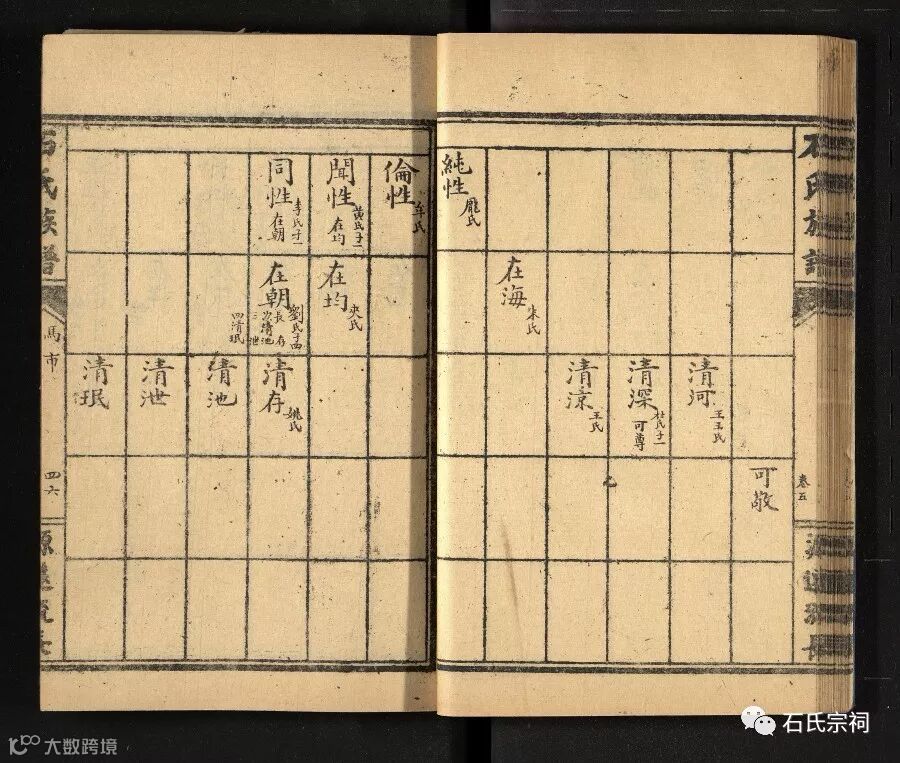 石氏族譜
卷五
源遠流長
可敬
清河
王王氏
清深
杜氏子一
可尊
清涼
王氏
在海
朱氏
純性
龐氏
倫性
牟氏
聞性
黃氏子一
在均
在均
夾氏
同性
李氏子一
在朝
在朝
劉氏子四
長存
次清池
三泄
四清珉
清存
姚氏
清池
清泄
清珉
石氏族譜
馬市
四六
源遠流長
石氏宗祠
大数跨境